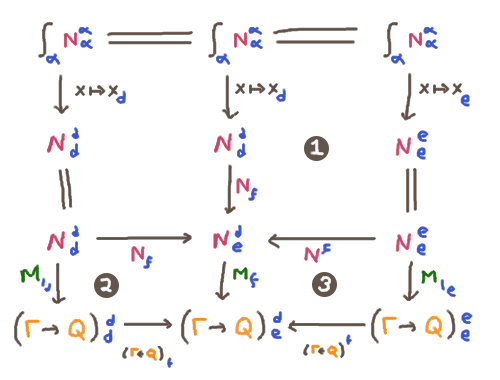 ∫_α N^α_α ═ ∫_α N^α_α ═ ∫_α N^α_α
x ↦ x_d x ↦ x_d x ↦ x_e
N^d_d N^d_d ❶ N^e_e
N_f
N^d_d → N^d_e ← N^e_e
N_f N^f
M_{1_d} ❷ M_f ❸ M_{1_e}
(Γ → Q)^d_d → (Γ → Q)^d_e ← (Γ → Q)^e_e
(Γ→Q)_f (Γ→Q)^f